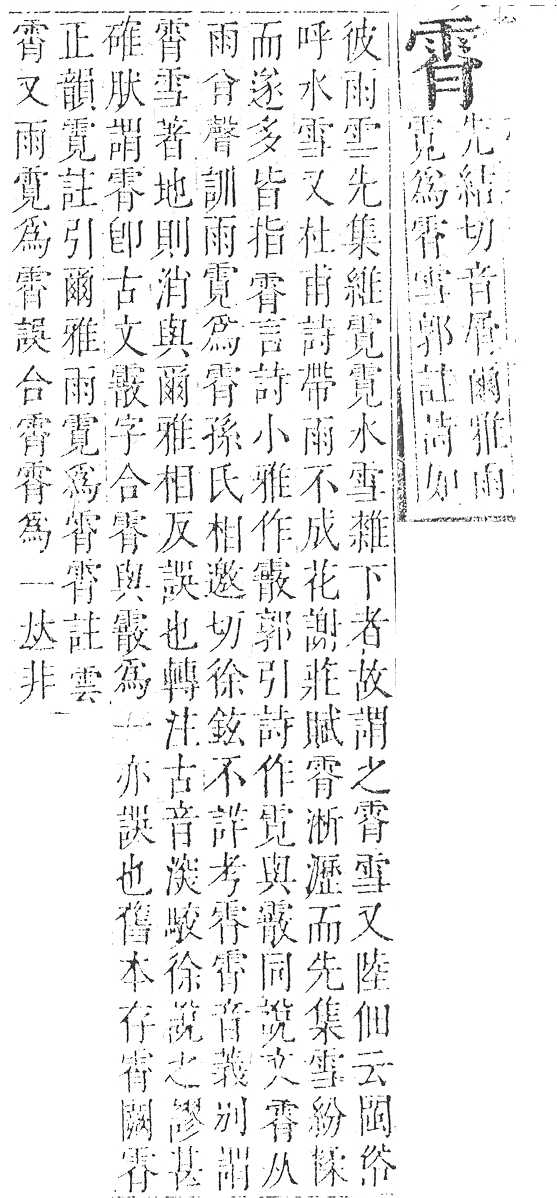 霄
先結切音屑爾雅雨
霓爲霄雪郭註詩如
彼雨雪先集維霓霓水雪雜下者故謂之霄雪又陸佃云閩俗
呼水雪又杜甫詩帶雨不成花謝莊賦霄淅瀝而先集雪紛揉
而遂多皆指霄言詩小雅作霰郭引詩作霓與霰同說文霄从
雨肖聲訓雨霓爲霄孫氏相邀切徐鉉不詳考霄霄音義別謂
霄雪著地則消與爾雅相反誤也轉注古音淡駮徐說之謬甚
確肰謂霄卽古文霰字合霄與霰爲一亦誤也舊本存霄闕霄
正韻霓註引爾雅雨霓爲霄霄註雲
霄又雨霓爲霄誤合霄霄爲一𠀤非